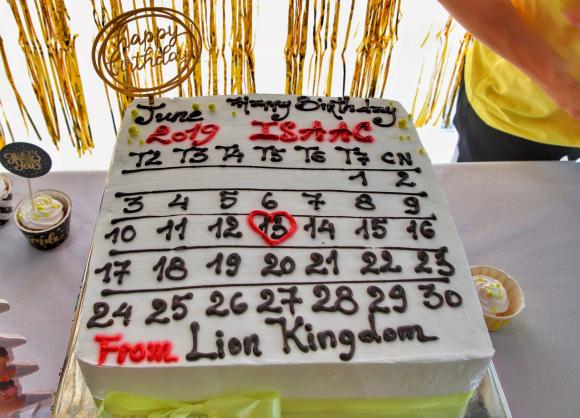 happy
birthday
June Happy Birthday
2019 ISAAC
T2 T3 T4 T5 T6 T7 CN
1 2
3 4 5 6 7 8 9
10 11 12 13 14 15 16
17 18 19 20 21 22 23
24 25 26 27 28 29 30
From Lion Kingdom